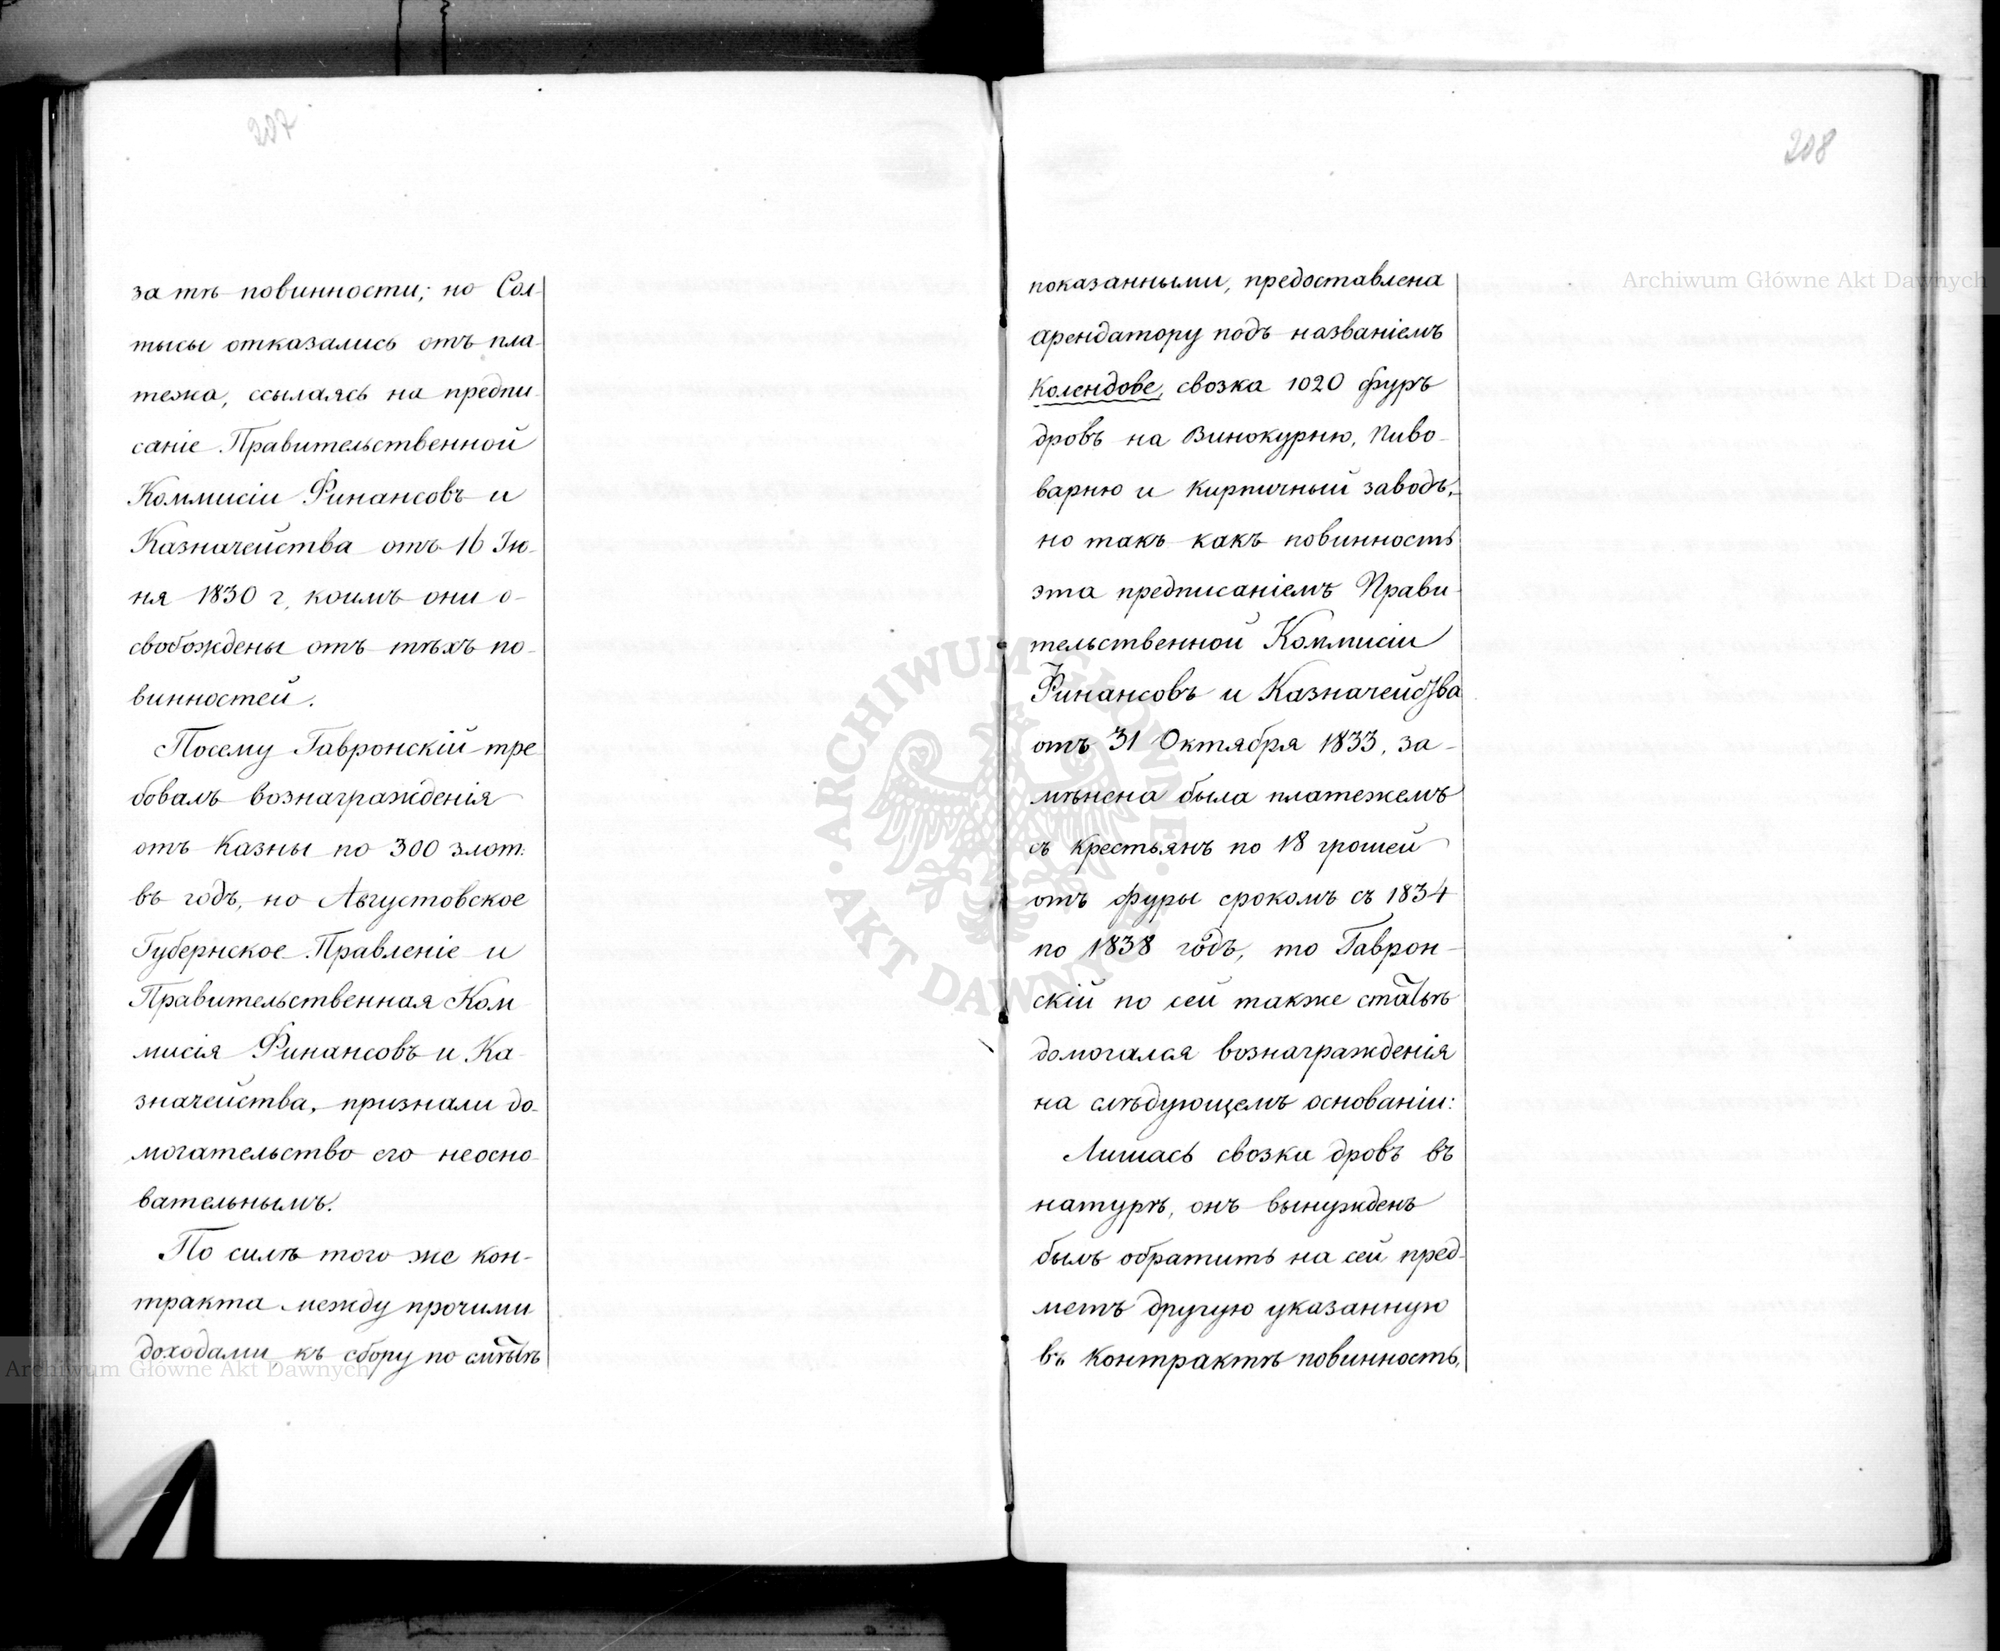 207
за тѣ повинности; но Сол-
тысы отказались отъ пла-
тежа, ссылаясь на предпи-
саніе Правительственной
Коммисіи Финансовъ и
Казначейства отъ 16 Ію-
ня 1830 г, коимъ они о-
свобождены отъ тѣхъ по-
винностей.
Посему Гавронскій тре
бовалъ вознагражденія
отъ Казны по 300 злот:
въ годъ, но Августовское
Губернское Правленіе и
Правительственная Ком
мисія Финансовъ и Ка-
значейства, признали до-
могательство его неосно-
вательнымъ.
По силѣ того же кон-
тракта между прочими
доходами къ сбору по смѣтѣ
208
показанными, предоставлена
арендатору подъ названіемъ
Колендове, свозка 1020 фуръ
дровъ на Винокурню, Пиво-
варню и Кирпичный заводъ,
но такъ какъ повинность
эта предписаніемъ Прави-
тельственной Коммисіи
Финансовъ и Казначейства
отъ 31 Октября 1833, за-
мѣнена была платежемъ
съ крестьянъ по 18 грошей
отъ фуры срокомъ съ 1834
по 1838 годъ, то Гаврон-
скій по сей также статьѣ
домогался вознагражденія
на слѣдующемъ основаніи:
Лишась свозки дровъ въ
натурѣ, онъ вынужденъ
былъ обратить на сей пред-
метъ другую указанную
въ контрактѣ повинность,
Archiwum Główne Akt Dawnych
ARCHIWUM GŁÓWNE AKT DAWNYCH
Archiwum Główne Akt Dawnych